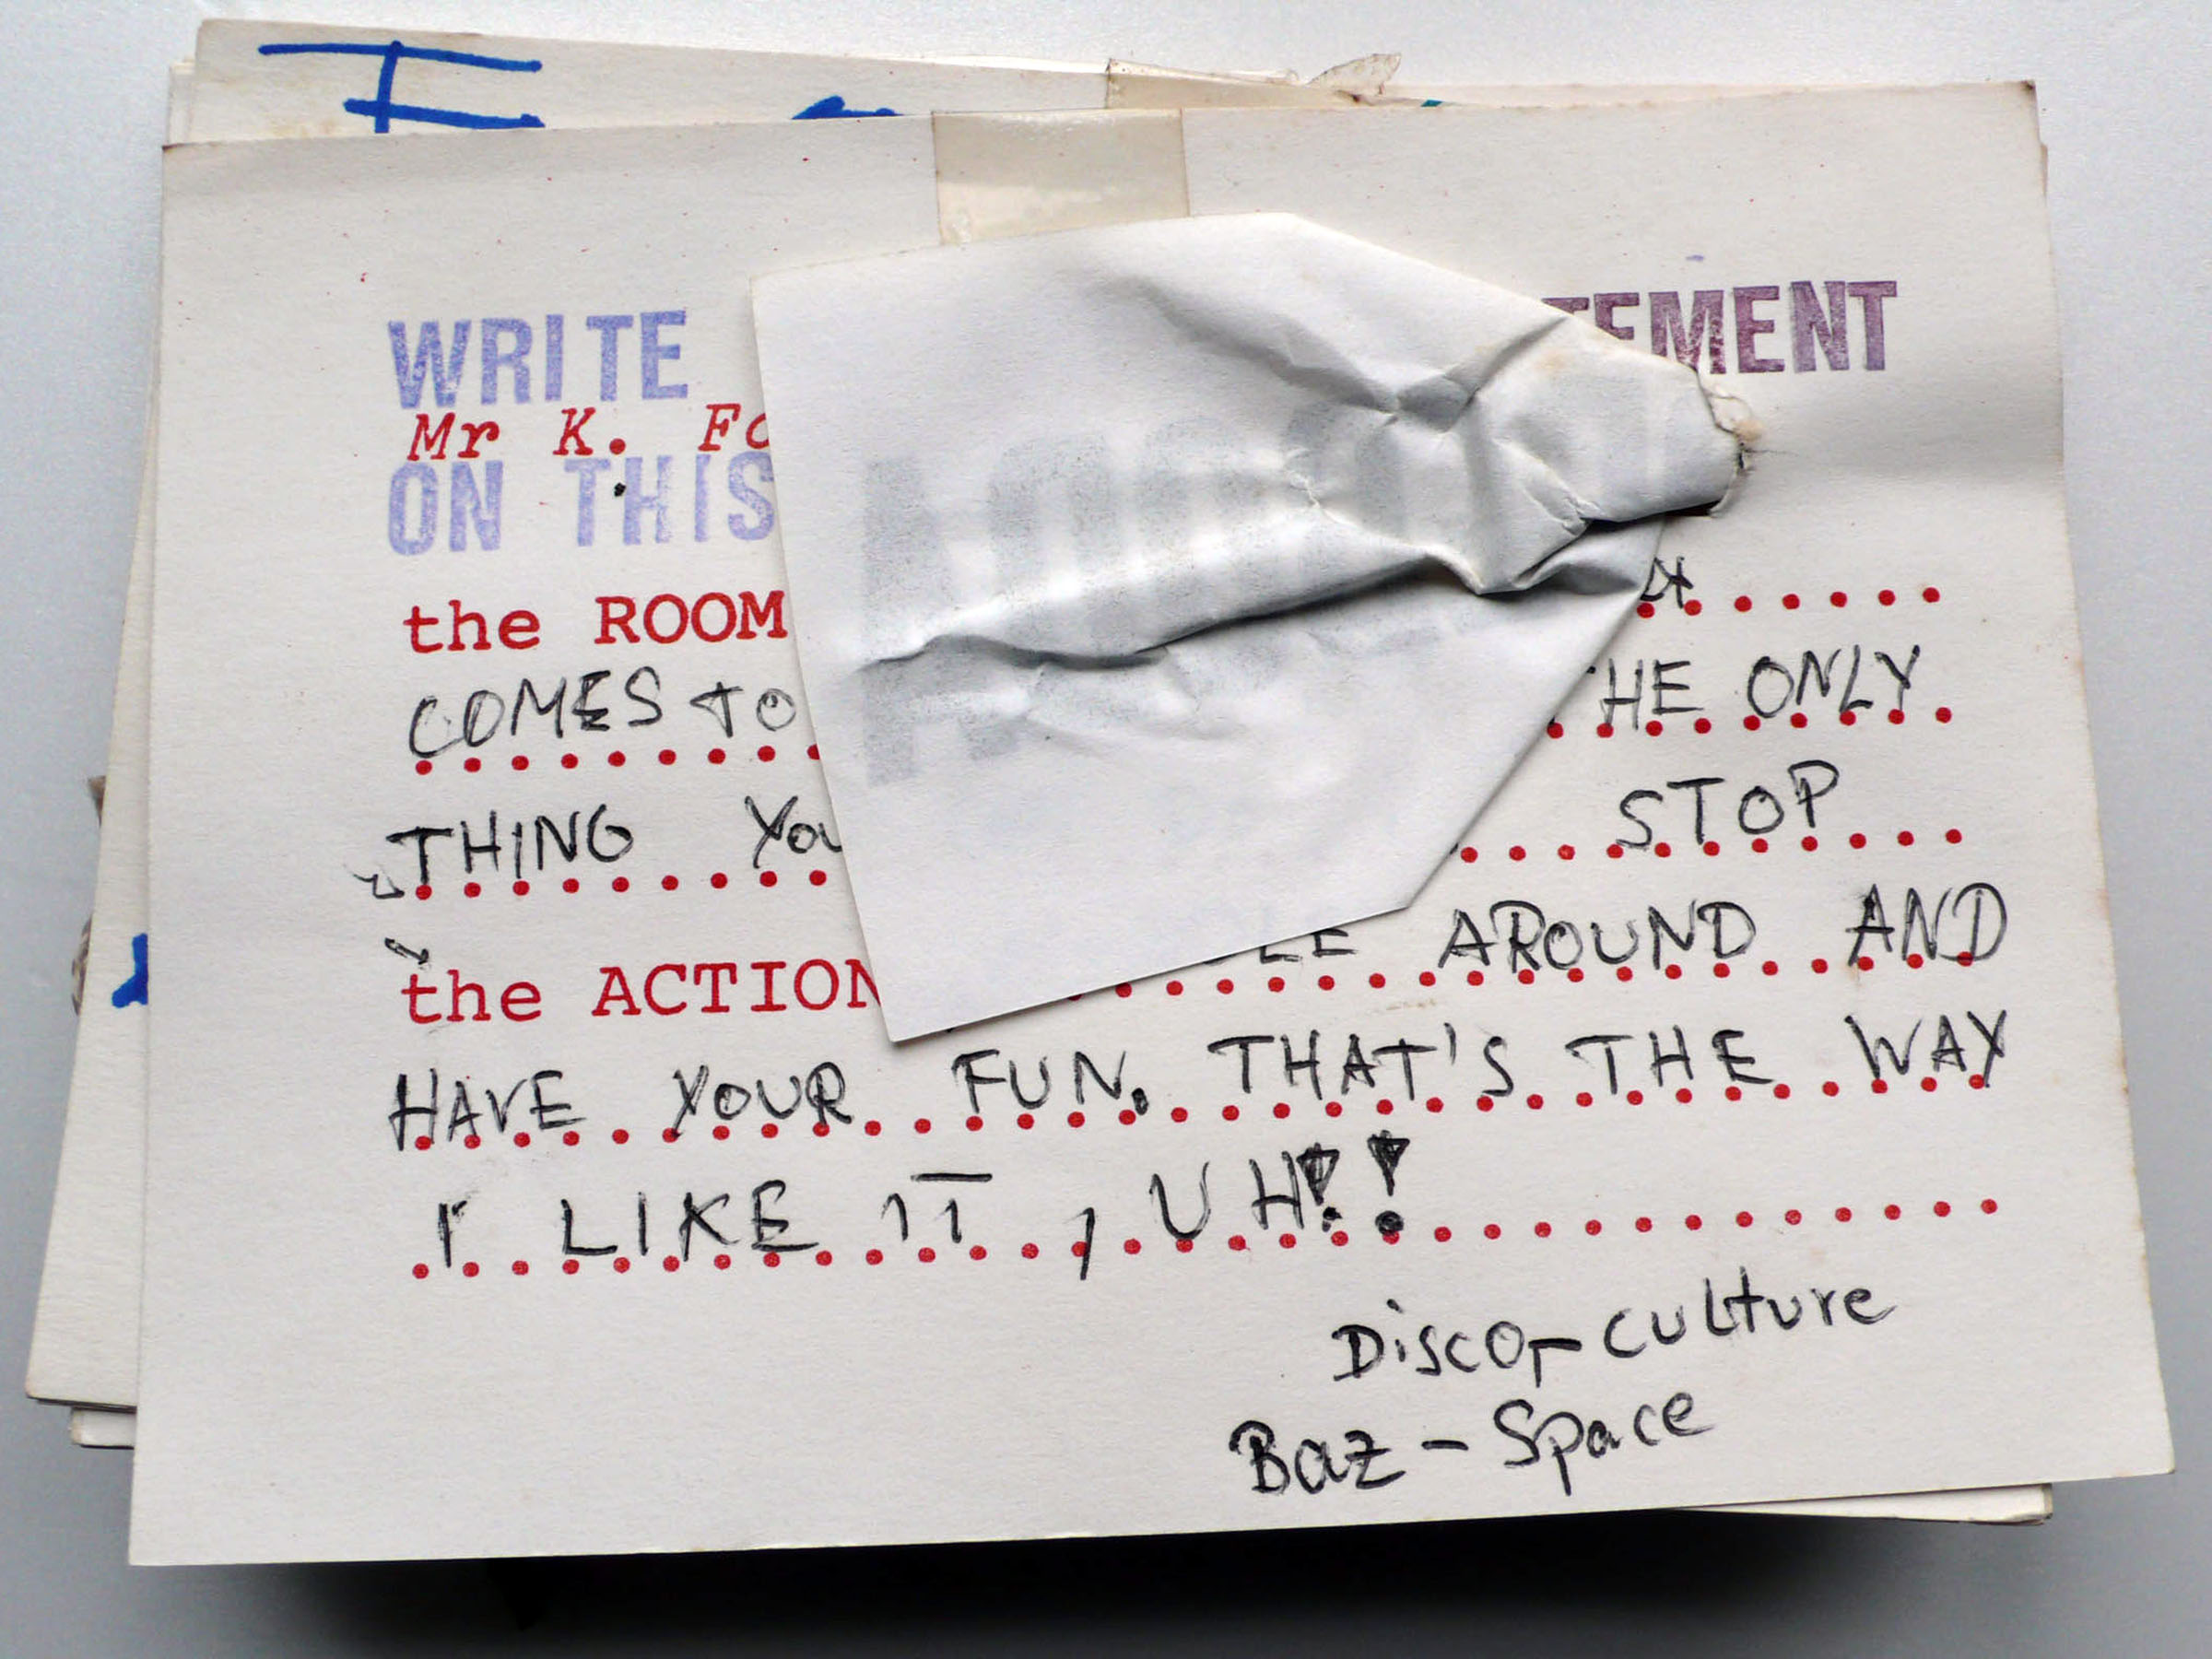 WRITE
Mr K.
ON THIS
the ROOM
COMES TO THE ONLY
THING STOP
the ACTION AROUND AND
HAVE YOUR FUN. THAT'S THE WAY
I LIKE IT, UH!!
Disco-culture
Baz-Space